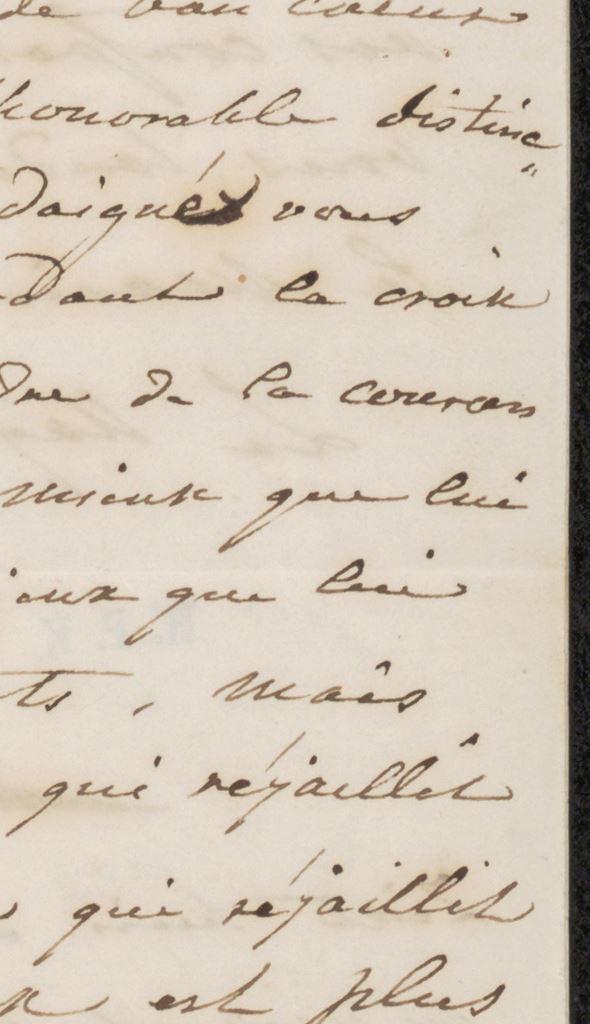 de
honorable distinc"
daigné vous
dant la croix
de la couron
mieux que lui
ieux que lui
ts, mais
qui réjaillit
qui réjaillit
est plus